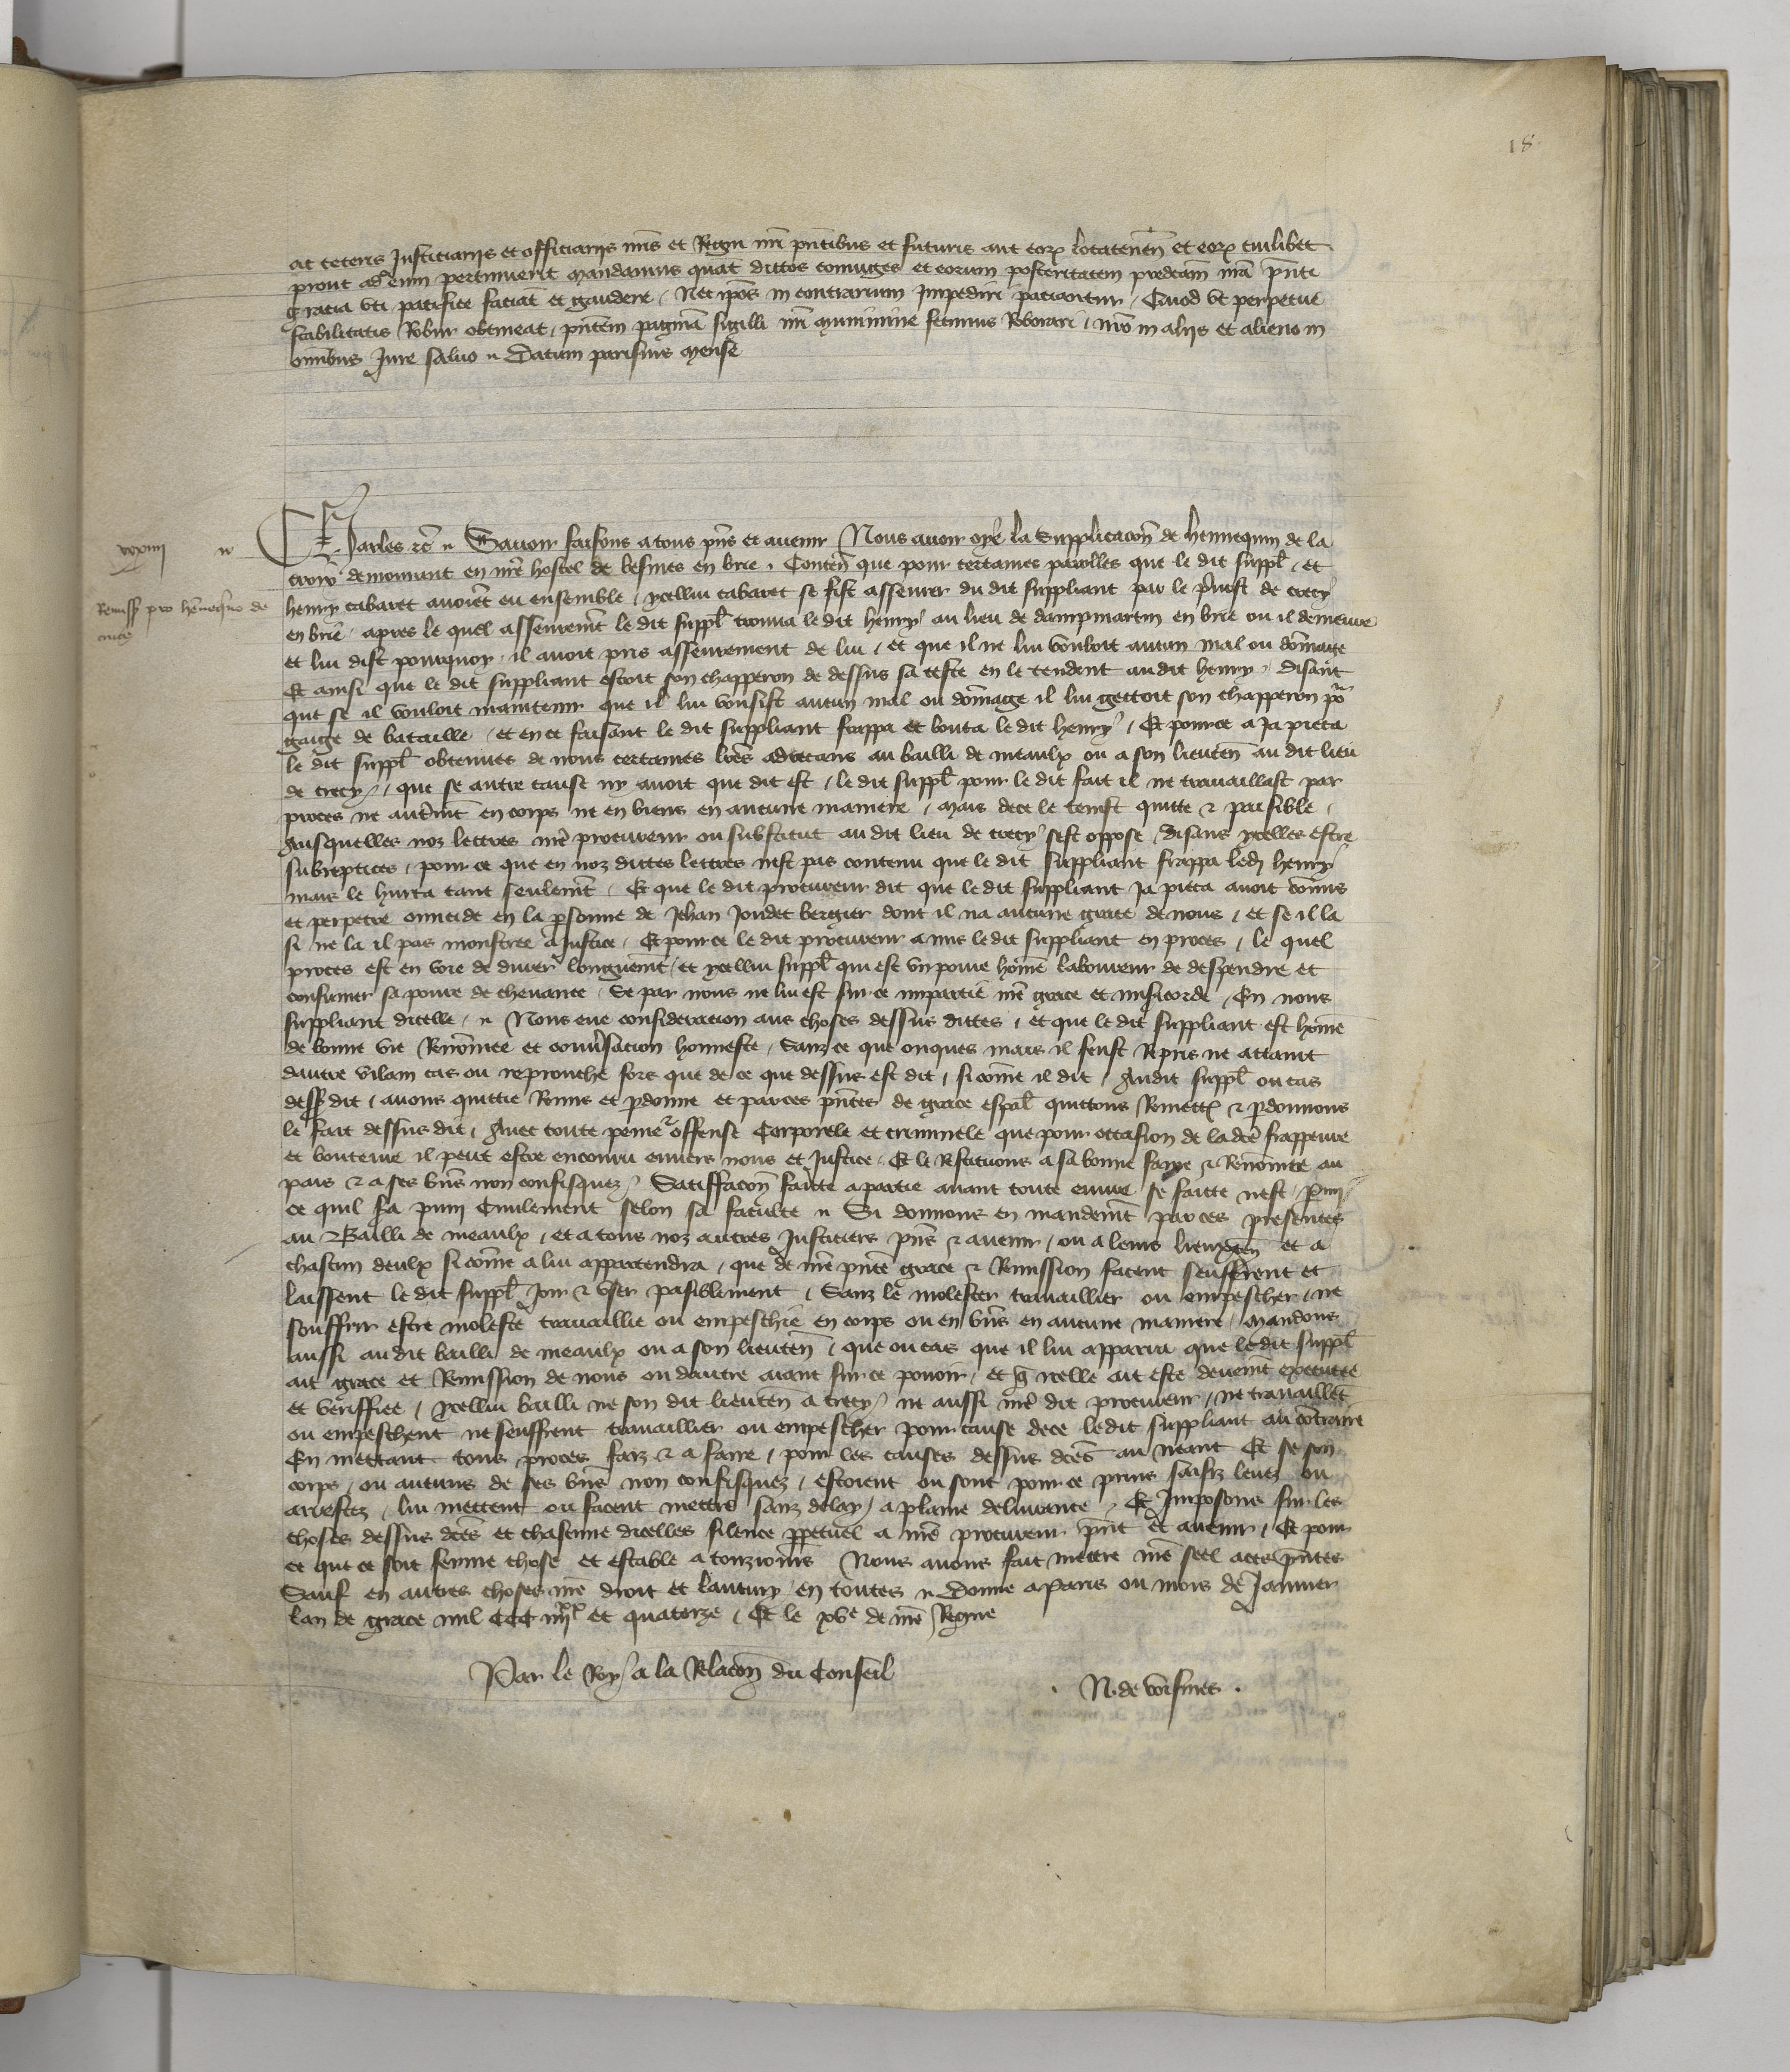 18
ac ceteris Justiciariis et officiariis nris et Regni nri pntibus et futuris aut eorum locatenen et eorum cuilibet
prout ad eum pertinuerit mandamus quat dictos coniuges et eorum posteritatem predictam nra pnti
gracia uti pacifice faciat et gaudere, Nec ipos in contrarium Impediri paciantur, Quod ut perpetue
stabilitatis Robur obtineat, pntem paginam sigilli nri munimine fecimus Roborari, nro in aliis et alieno in
omnibus Jure salvo. Datum parisius mense
Charles etc. Savoir faisons a tous pns et avenir Nous avoir oye la Supplicacion de hennequin de la
croix demourant en nre hostel de besmes en brie, Conten que pour certaines parolles que le dit suppl, et
henry cabaret avoient eu ensemble, ycellui cabaret se fist asseurer du dit suppliant par le prevost de crecy
en brie, apres le quel asseurement le dit suppl trouva le dit henry au lieu de dampmartin en brie ou il demeure
et lui dist pourquoy il avoit pris asseurement de lui, et que il ne lui vouloit aucun mal ou domage
Et ainsi que le dit suppliant ostoit son chapperon de dessus sa teste en le tendent au dit henry, disant
que se il vouloit maintenir que il lui voulsist aucun mal ou domage il lui gettoit son chapperon pour
gaige de bataille, et en ce faisant le dit suppliant frappa et bouta le dit henry, Et pour ce a Ja pieca
le dit suppl obtenues de nous certaines lres adrecans au bailli de meaulx ou a son lieuten au dit lieu
de crecy, que se autre cause ny avoit que dit est, le dit suppl pour le dit fait il ne travaillast par
proces ne autrement en corps ne en biens en aucune maniere, mais de ce le tenist quitte et paisible,
Ausquelles noz lettres nre procureur ou substitut au dit lieu de crecy sest oppose, disans ycelles estre
subreptices, pour ce que en noz dittes lettres nest pas contenu que le dit suppliant frappa led henry
mais le hurta tant seulement, Et que le dit procureur dit que le dit suppliant Ja pieca avoit commis
et perpetre omicide en la personne de Jehan Joudet bergier dont il na aucune grace de nous, et se il la
si ne la il pas monstree a Justice, Et pour ce le dit procureur a mis le dit suppliant en proces, le quel
proces est en voie de durer longuement, et ycellui suppl qui est un povre homme laboureur de despendre et
consumer sa povre de chevance, Se par nous ne lui est sur ce impartie nre grace et misericorde, En nous
suppliant dicelle. Nous eue consideracion aus choses dessus dittes, et que le dit suppliant est homme
de bonne vie Renommee et conversacion honneste, Sanz ce que onques mais il feust Repris ne attaint
dautre vilain cas ou reprouche fors que de ce que dessus est dit, si come il dit, Audit suppl ou cas
dessus dit, avons quittie Remis et pardonne et par ces pntes de grace espal quittons Remettons et pardonnons
le fait dessus dit, Avec toute peine et offense Corporele et criminele que pour occasion de la dce frappeure
et bouteure il peut estre encouru envers nous et Justice, Et le Restituons a sa bonne fame et Renommee au
pais et a ses biens non confisquez, Satiffacion faicte a partie avant toute euvre se faicte nest, Parmi
ce quil sera puni Civilement selon sa faculte. Si donnons en mandement par ces presentes
au Bailli de meaulx, et a tous noz autres Justiciers pns et avenir, ou a leurs lieuxten et a
chascun deulx si comme a lui appartendra, que de nre pnte grace et Remission facent seuffrent et
laissent le dit suppl Joir et user paisiblement, Sanz le molester travaillier ou empescher, ne
souffrir estre moleste travaillie ou empeschie en corps ou en biens en aucune maniere, Mandons
aussi au dit bailli de meaulx ou a son lieuten, que ou cas que il lui apparra que le dit suppl
ait grace et Remission de nous ou dautre aiant sur ce povoir, et que icelle ait este deuement executee
et veriffiee, ycellui bailli ne son dit lieuten a crecy, ne aussi nre dit procureur, ne travaillent
ou empeschent ne seuffrent travaillier ou empescher pour cause de ce le dit suppliant au contraire
En mettant tous proces faiz et a faire, pour les causes dessus dces au neant Et se son
corps, ou aucuns de ses biens non confisquez, estoient ou sont pour ce prins saisiz levez ou
arrestez, lui mettent ou facent mettre sanz delay, a plaine delivrance, Et Imposons sur les
choses dessus dces et chascune dicelles silence perpetuel a nre procureur pnt et avenir, Et pour
ce que ce soit ferme chose et estable a tousiours Nous avons fait mettre nre seel a ces pntes
Sauf en autres choses nre droit et lautruy en toutes. Donne a Paris ou mois de Janvier
lan de grace mil CCC iiiixx et quatorze, Et le xve de nre Regne
Par le Roy a la Relacion du Conseil
N. de voisines.
Remiss pro hennequino de
cruce